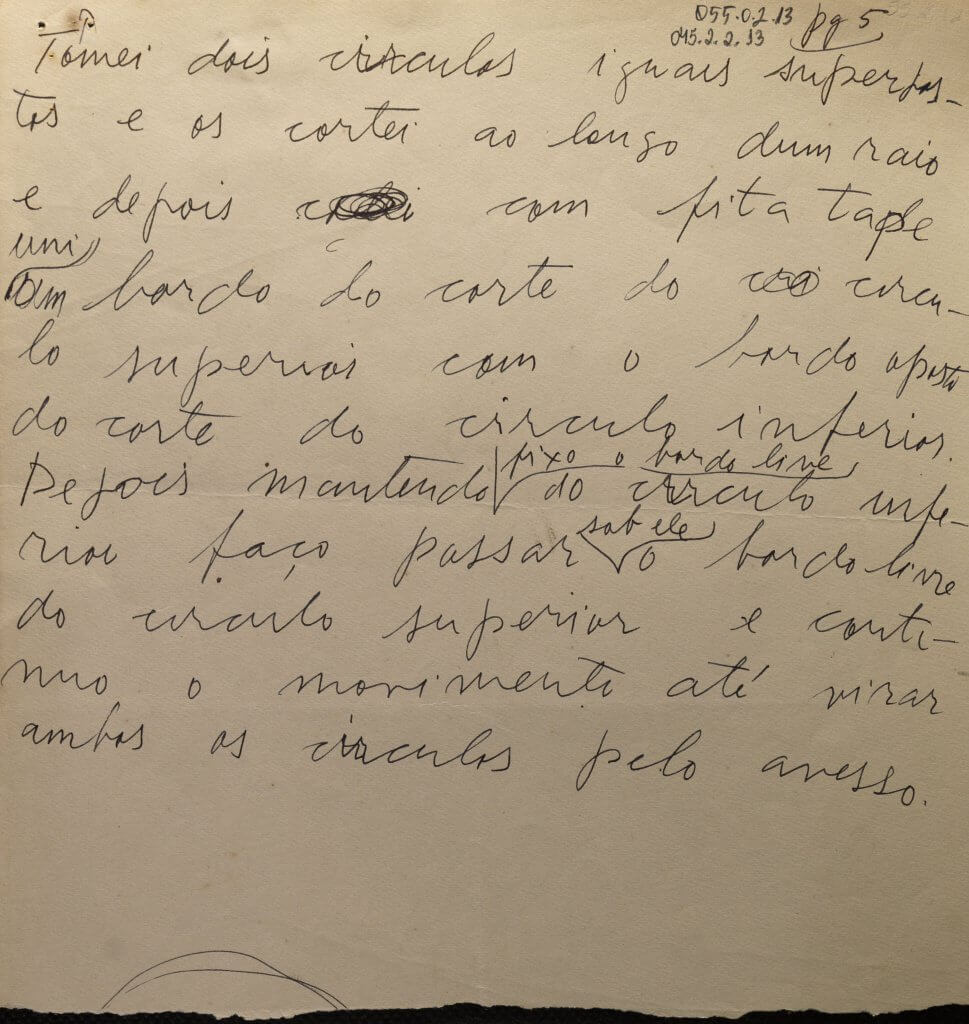 055.0.2.13
045.2.2.13 pg 5
Tomei dois circulos iguais superpos-
tos e os cortei ao longo dum raio
e depois com fita tape
uni
um bordo do corte do circu-
lo superior com o bordo oposto
do corte do circulo inferior.
fixo o bordo livre
Depois mantendo do circulo infe-
sob ele
rior faço passar o bordo livre
do circulo superior e conti-
nuo o movimento até virar
ambos os circulos pelo avesso.